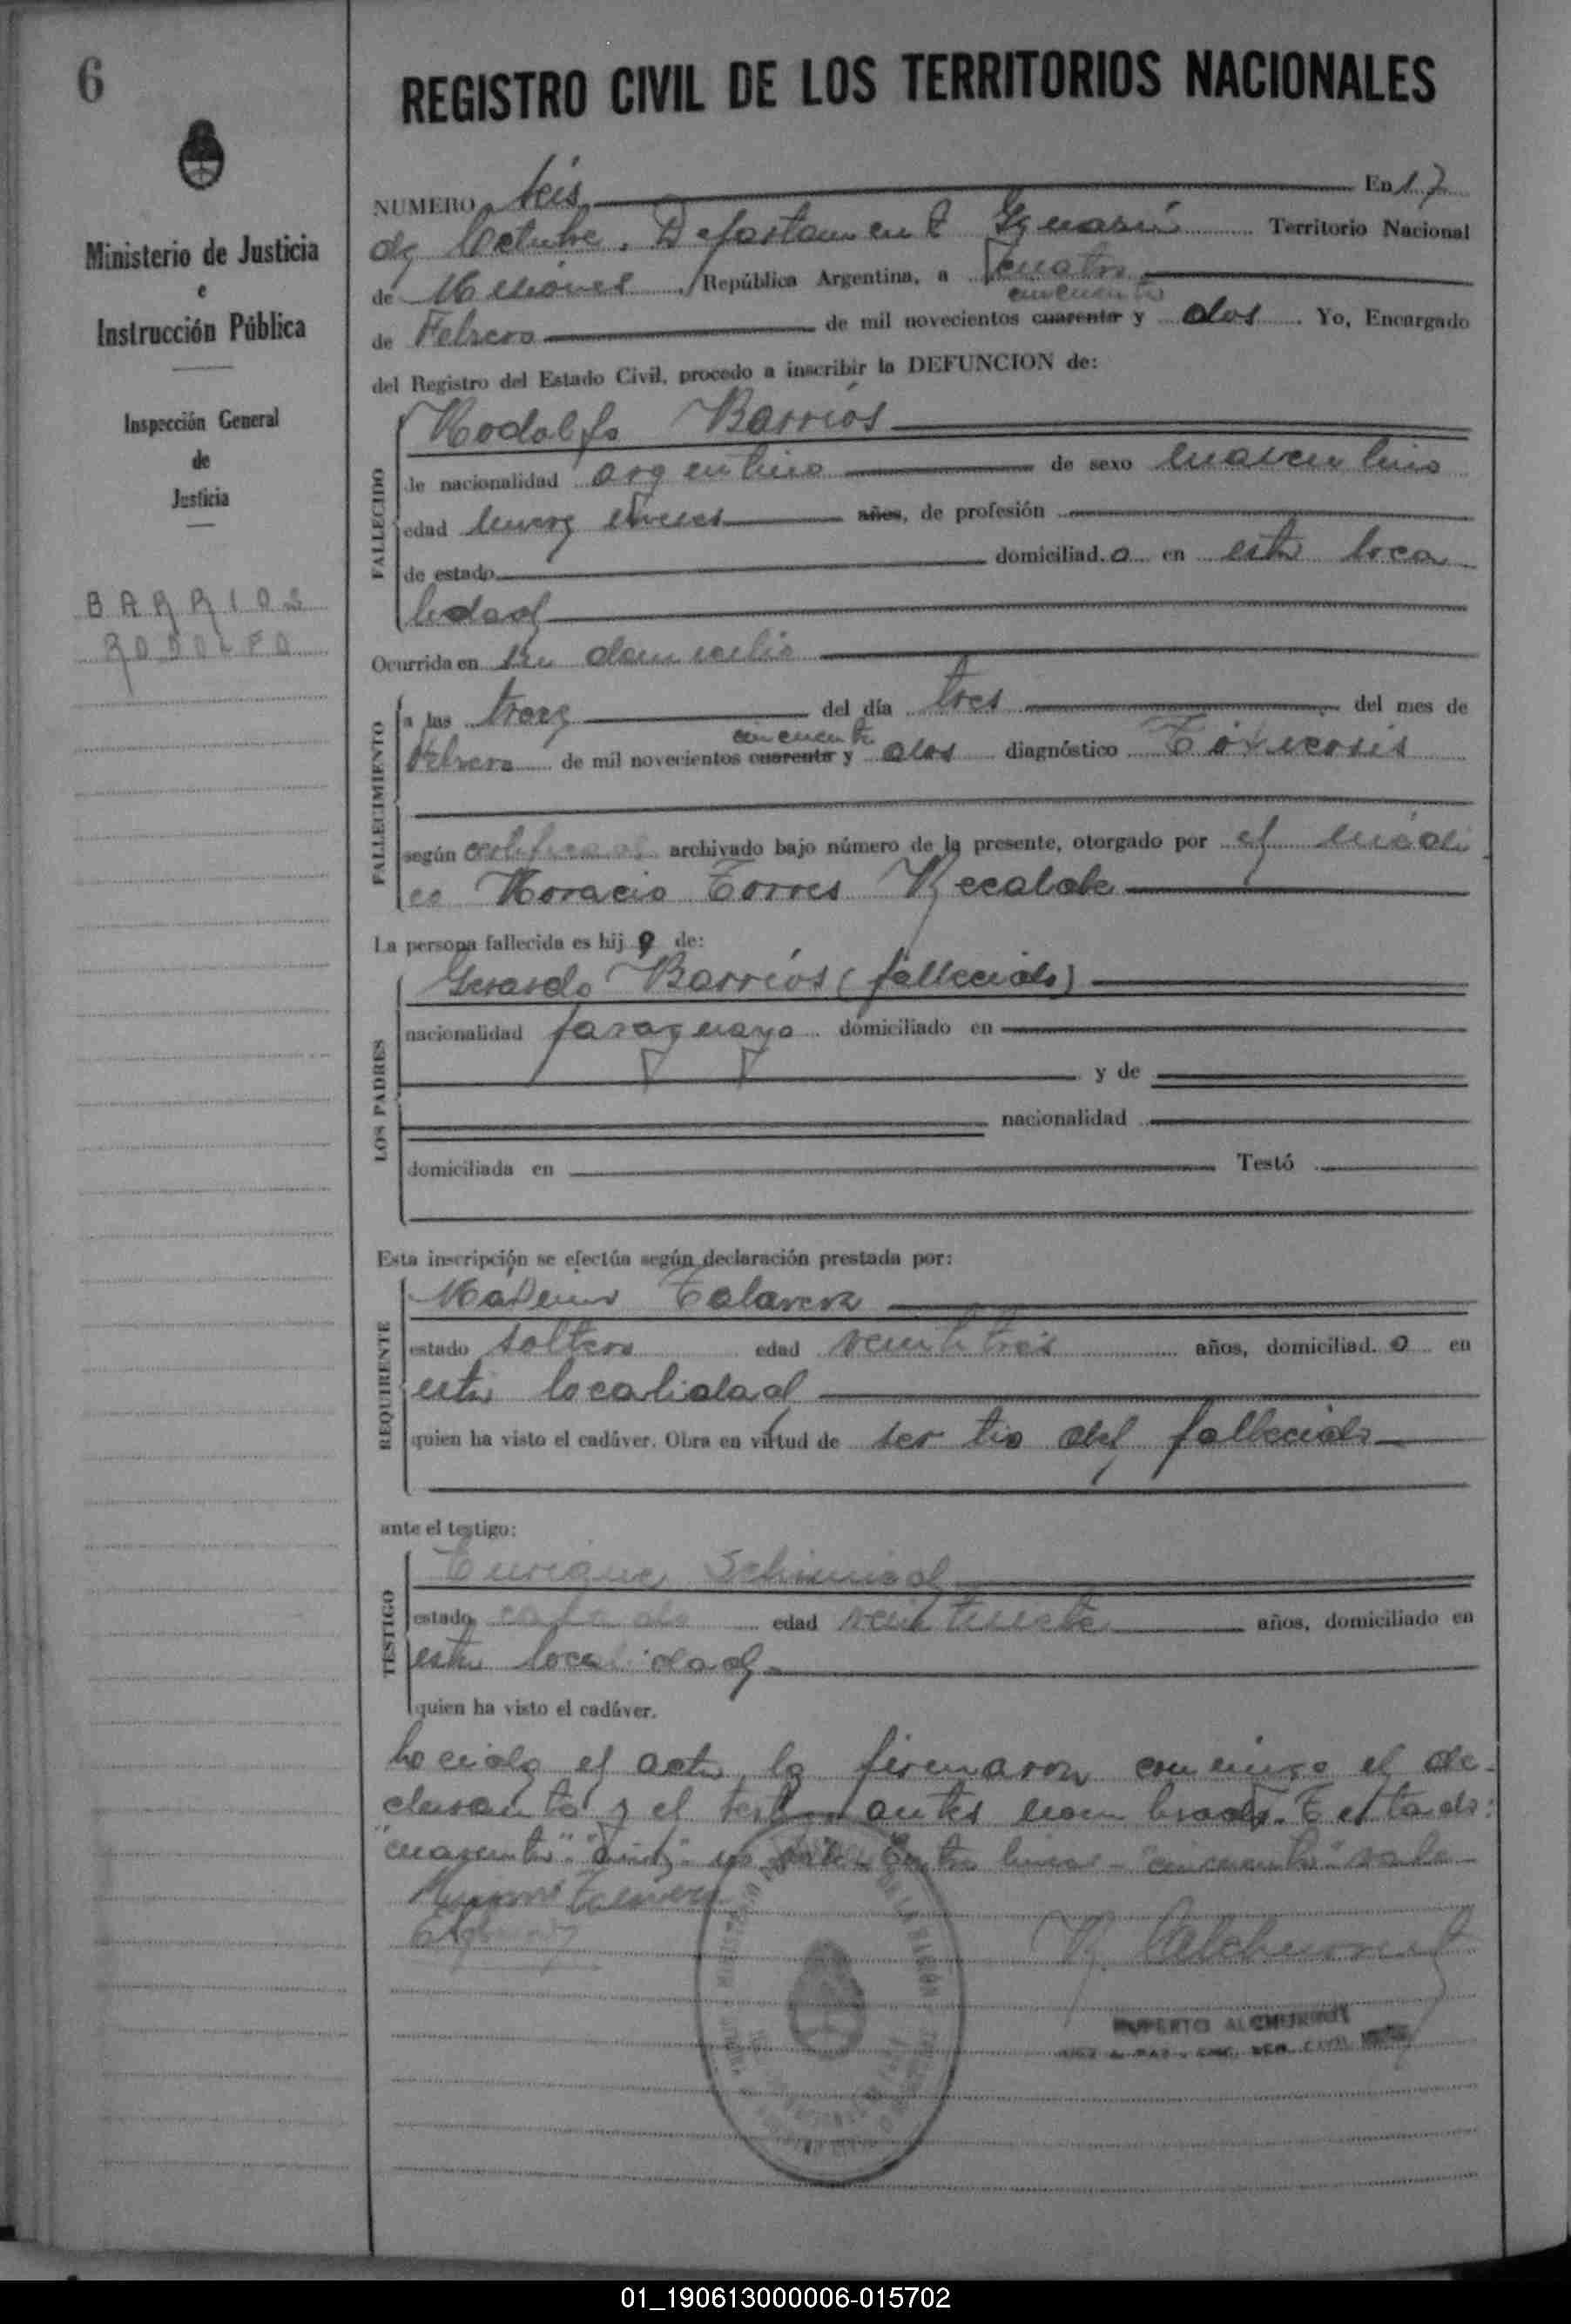 6
REGISTRO CIVIL DE LOS TERRITORIOS NACIONALES
Ministerio de Justicia
e
Instrucción Pública
Inspección General
de
Justicia
BARRIOS
RODOLFO
NUMERO seis En 17
de Octubre. Departamento Territorio Nacional
de Misiones, República Argentina, a cuatro
cincuenta
de Febrero de mil novecientos cuarenta y dos. Yo, Encargado
del Registro del Estado Civil, procedo a inscribir la DEFUNCION de:
FALLECIDO
Rodolfo Barrios
de nacionalidad argentino de sexo masculino
edad nueve meses años, de profesión
de estado domiciliado en esta loca
lidad
Ocurrida en su domicilio
FALLECIMIENTO
a las trece del día tres del mes de
cincuenta
Febrero de mil novecientos cuarenta y dos diagnóstico Toxicosis
según certificado archivado bajo número de la presente, otorgado por el médi
co Horacio Torres Recalde
La persona fallecida es hijo de:
LOS PADRES
Gerardo Barrios (fallecido)
nacionalidad paraguayo domiciliado en
y de
nacionalidad
domiciliada en Testó
Esta inscripción se efectúa según declaración prestada por:
REQUIRENTE
Talavera
estado soltero edad veintitrés años, domiciliado en
esta localidad
quien ha visto el cadáver. Obra en virtud de ser tio del fallecido
ante el testigo:
TESTIGO
Enrique
estado casado edad años, domiciliado en
esta localidad
quien ha visto el cadáver.
el acta, la firmaron conmigo el de-
clarante y el testigo antes nombrados. Testado:
"cuarenta" no vale. Entre lineas - "cincuenta" vale
RUPERTO ALCHURRUT
01_190613000006-015702